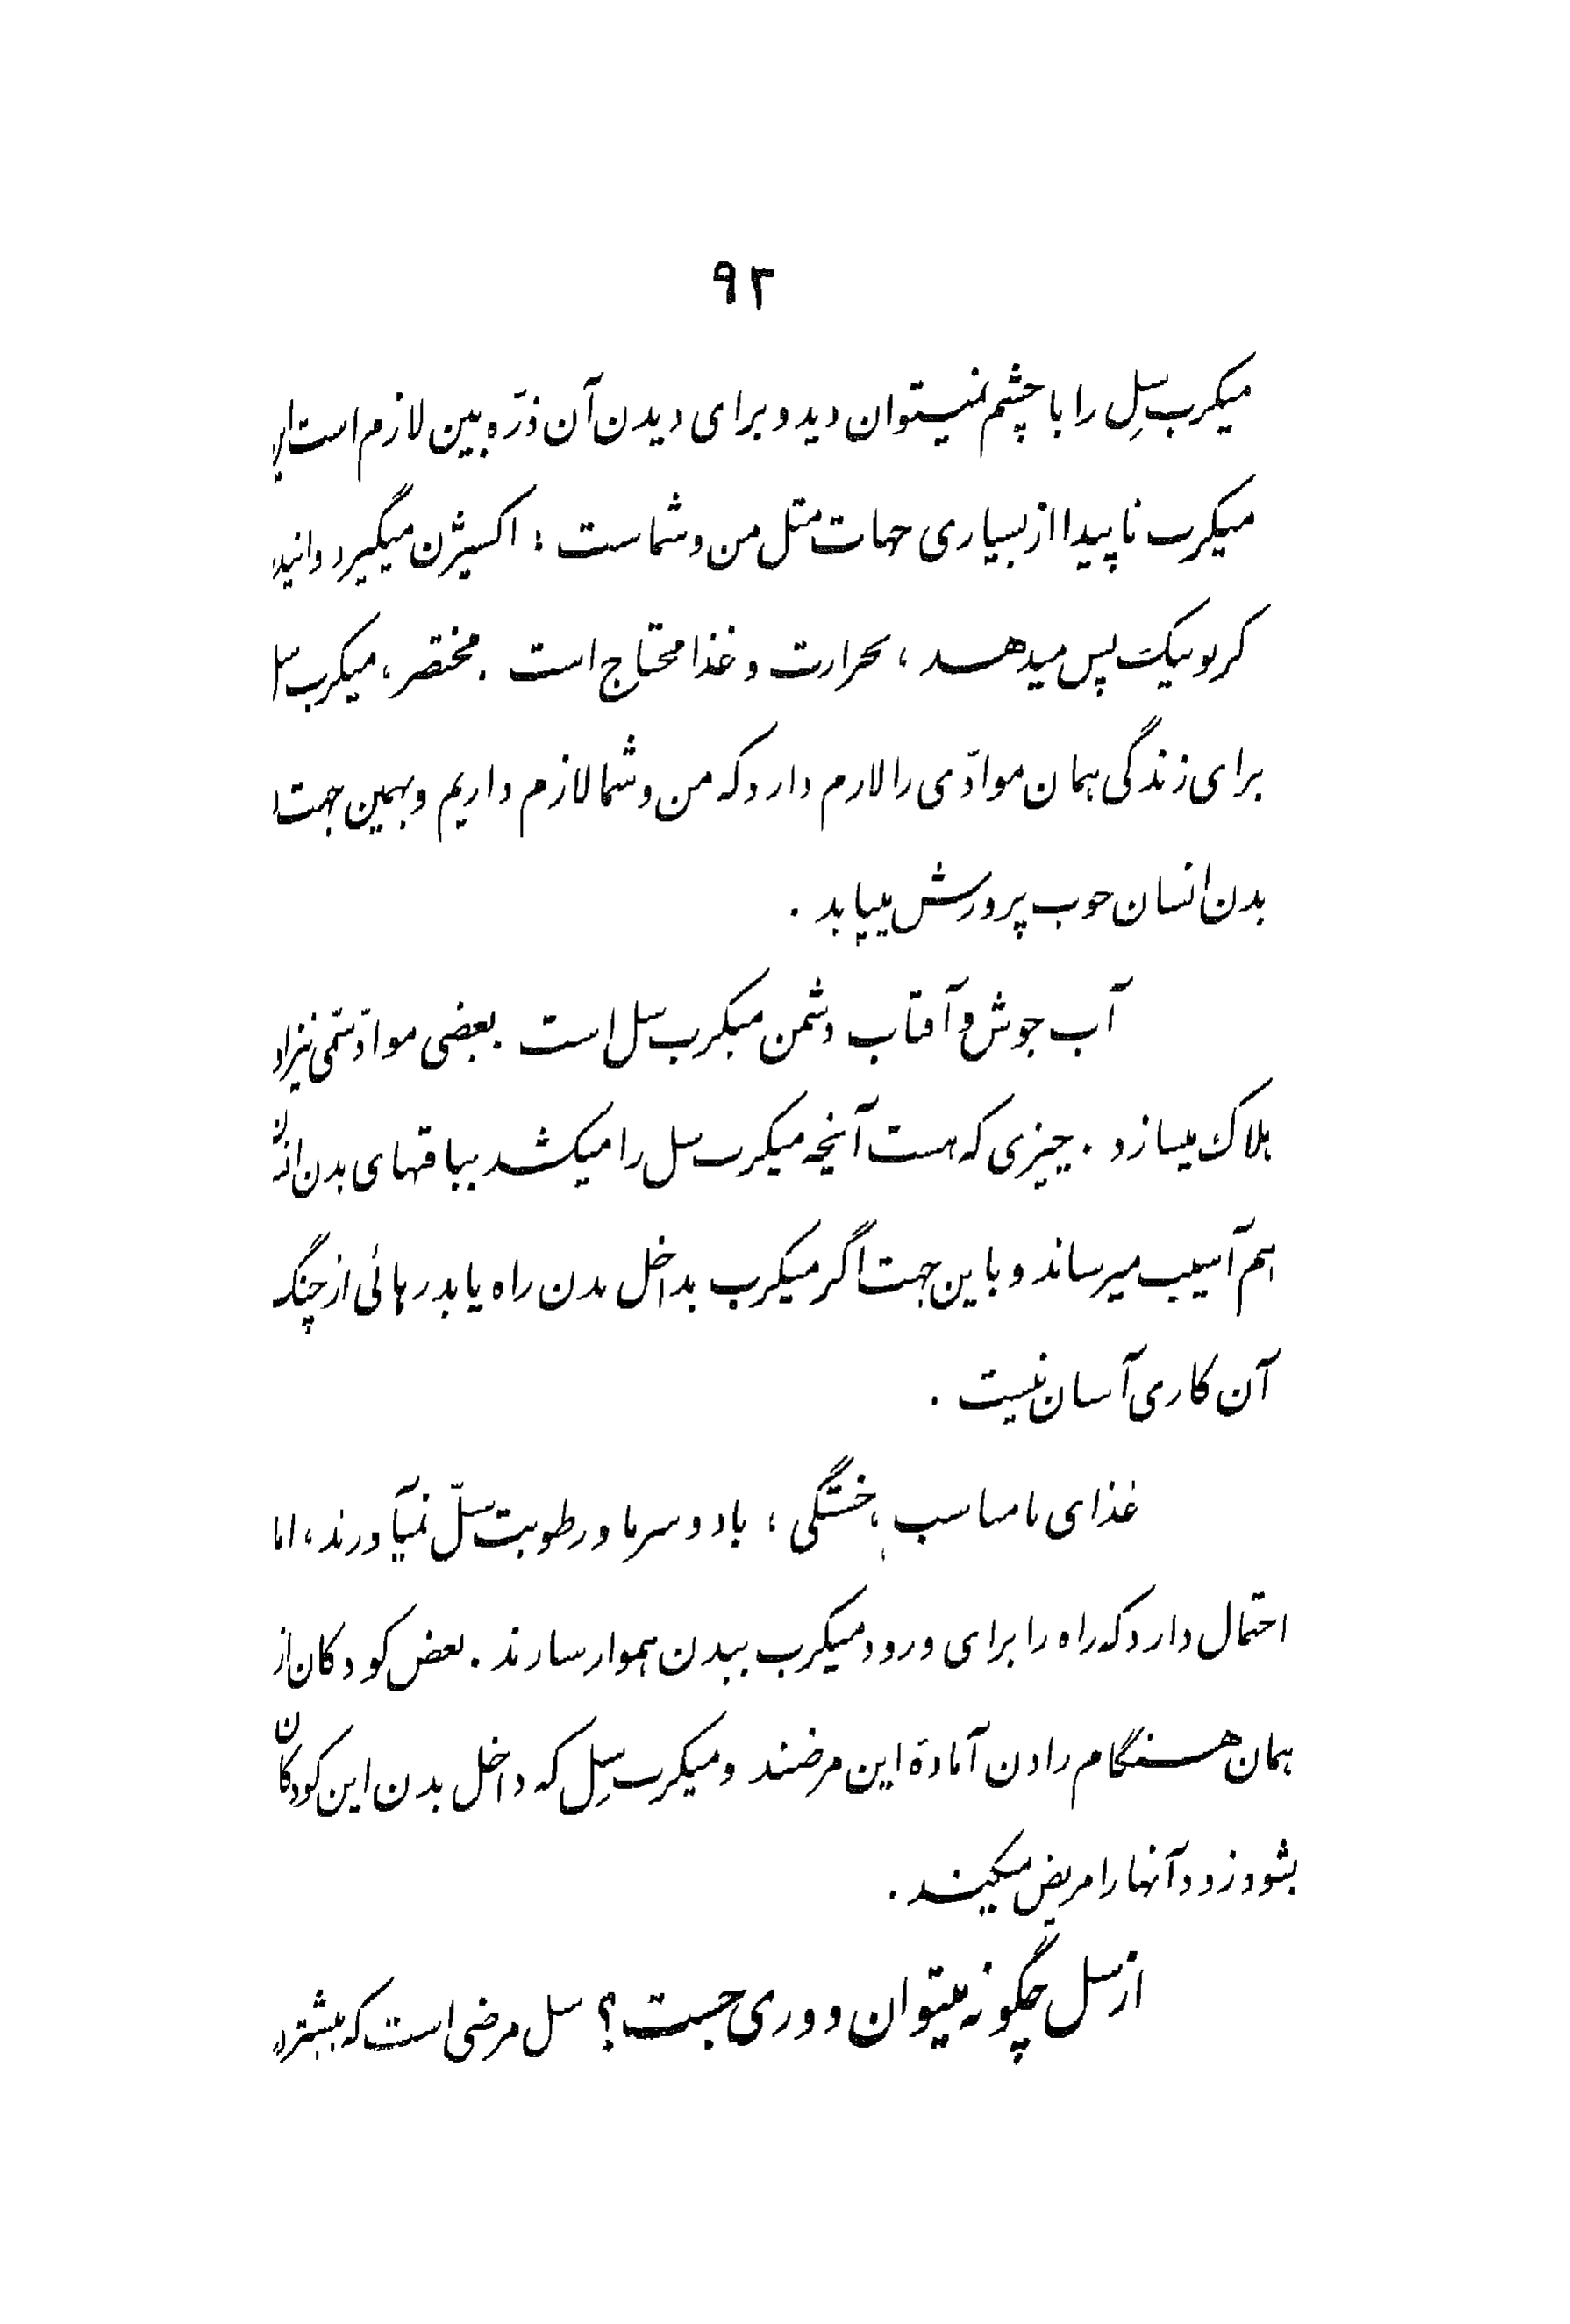 ۹۲
میکرب سِل را با چشم نمیتوان دید و برای دیدن آن ذرّه بین لازم است
میکرب ناپیدا از بسیاری جهات مثل من و شماست : اکسیژن میگیرد و
کربونیک پس میدهد ، بحرارت و غذا محتاج است . مختصر ، میکرب
برای زندگی همان موادّی را لازم دارد که من و شما لازم داریم و بهمین جهت
بدن انسان خوب پرورش مییابد .
آب جوش و آفتاب دشمن میکرب سل است . بعضی موادّ سمّی نیز
هلاک میسازد . چیزی که هست آنچه میکرب سل را میکشد ببافتهای بدن انسان
هم آسیب میرساند و باین جهت اگر میکرب بداخل بدن راه یابد رهائی از چنگ
آن کاری آسان نیست .
غذای نامناسب ، خستگی ، باد و سرما و رطوبت سلّ نمیآورند ، اما
احتمال دارد که راه را برای ورود میکرب ببدن هموار سازند . بعض کودکان از
همان هنگام زادن آمادۀ این مرضند و میکرب سِل که داخل بدن این کودکان
بشود زود آنها را مریض میکند .
از سل چگونه میتوان دوری جست ؟ سل مرضی است که بیشتر